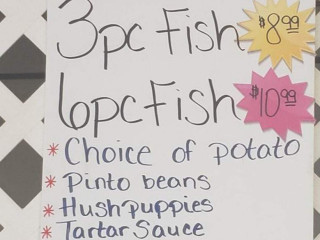 3pc Fish $8.99
6pc Fish $10.99
* Choice of potato
* Pinto beans
* Hushpuppies
* Tartar Sauce